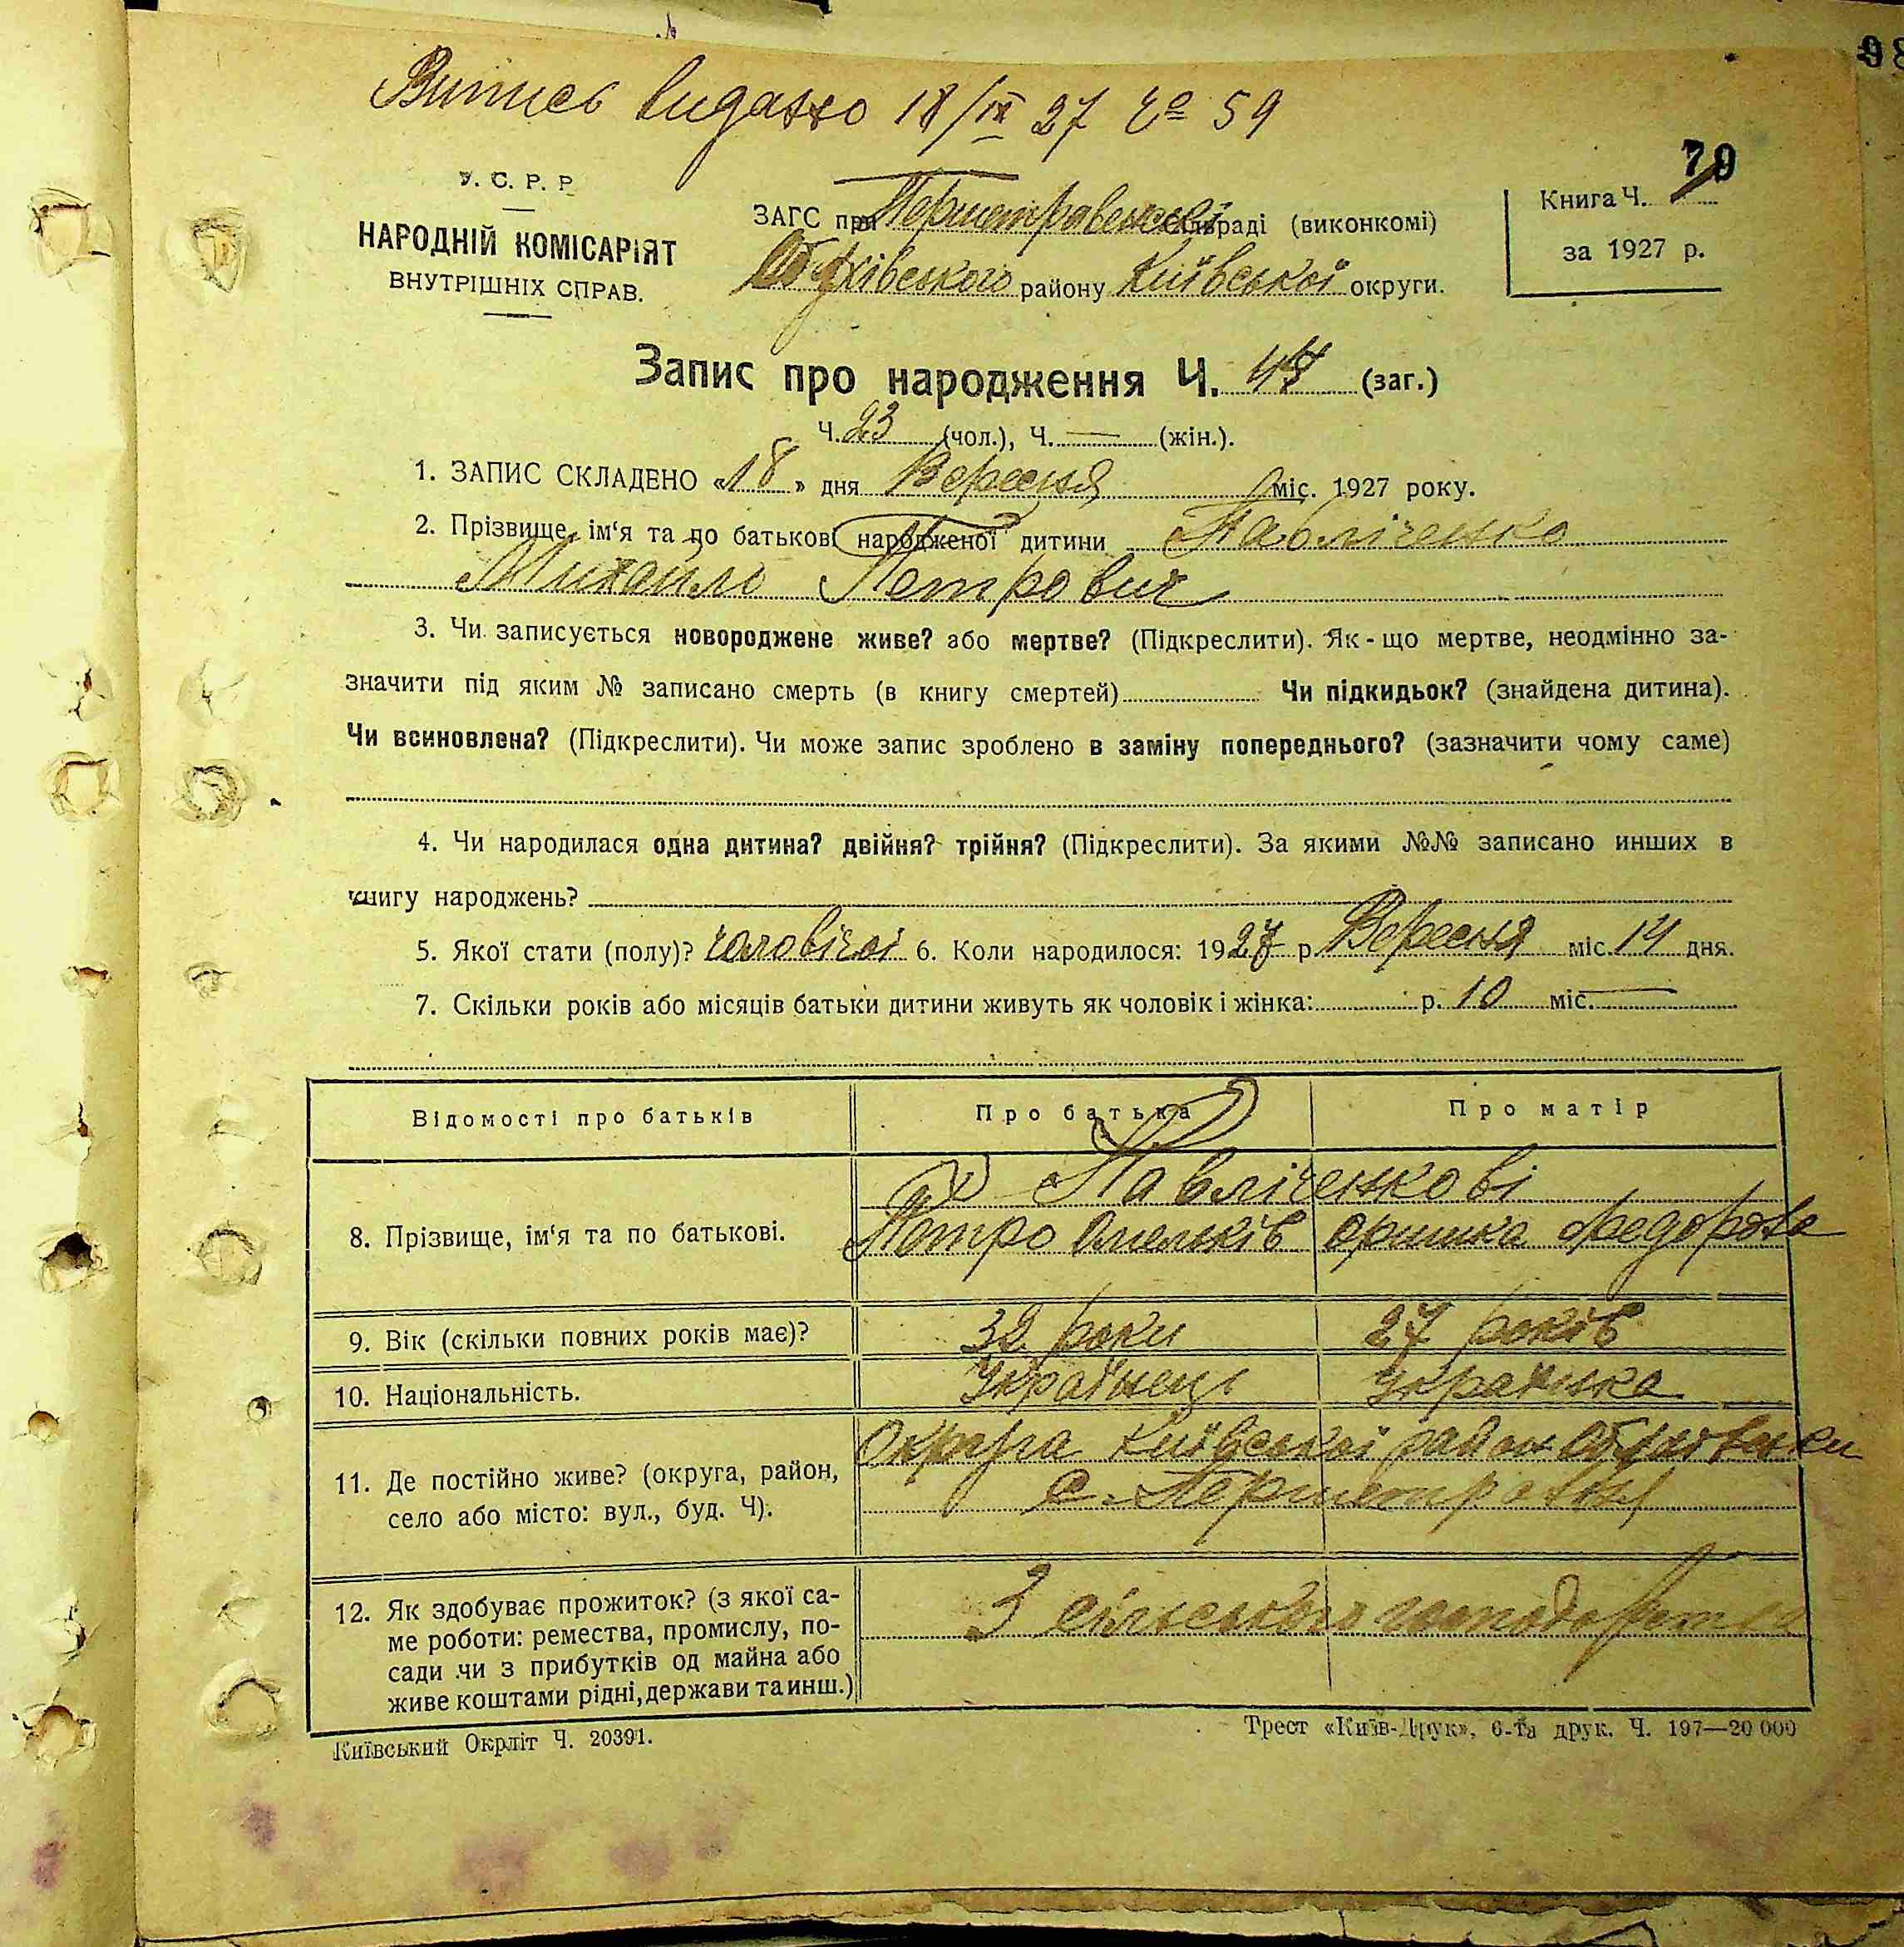 98
Випись видано 18/IX 27 г № 59
70
У. С. Р. Р.
НАРОДНІЙ КОМІСАРІЯТ
ВНУТРІШНІХ СПРАВ.
ЗАГС при сільраді (виконкомі)
Обухівського району Київської округи.
Книга Ч.
за 1927 р.
Запис про народження Ч. 47 (заг.)
Ч. 23 (чол.), Ч. — (жін.).
1. ЗАПИС СКЛАДЕНО «18» дня Вересня міс. 1927 року.
2. Прізвище, ім‘я та по батькові народженої дитини Павліченко
Михайло Петрович
3. Чи записується новороджене живе? або мертве? (Підкреслити). Як-що мертве, неодмінно за-
значити під яким № записано смерть (в книгу смертей) Чи підкидьок? (знайдена дитина).
Чи всиновлена? (Підкреслити). Чи може запис зроблено в заміну попереднього? (зазначити чому саме)
4. Чи народилася одна дитина? двійня? трійня? (Підкреслити). За якими №№ записано инших в
книгу народжень?
5. Якої стати (полу)? чоловічої 6. Коли народилося: 1927 р. Вересня міс. 14 дня.
7. Скільки років або місяців батьки дитини живуть як чоловік і жінка: р. 10 міс. —
Відомості про батьків Про батька Про матір
8. Прізвище, ім‘я та по батькові.
Павліченкові
Петро Омельків Оришка Федорова
9. Вік (скільки повних років має)? 32 роки 27 років
10. Національність. Українець Українка
11. Де постійно живе? (округа, район,
село або місто: вул., буд. Ч).
Округа Київської район
с.
12. Як здобуває прожиток? (з якої са-
ме роботи: ремества, промислу, по-
сади чи з прибутків од майна або
живе коштами рідні, держави та инш.)
З сільського господарства
Київський Окрліт Ч. 20391.
Трест «Київ-Друк», 6-та друк. Ч. 197—20 000